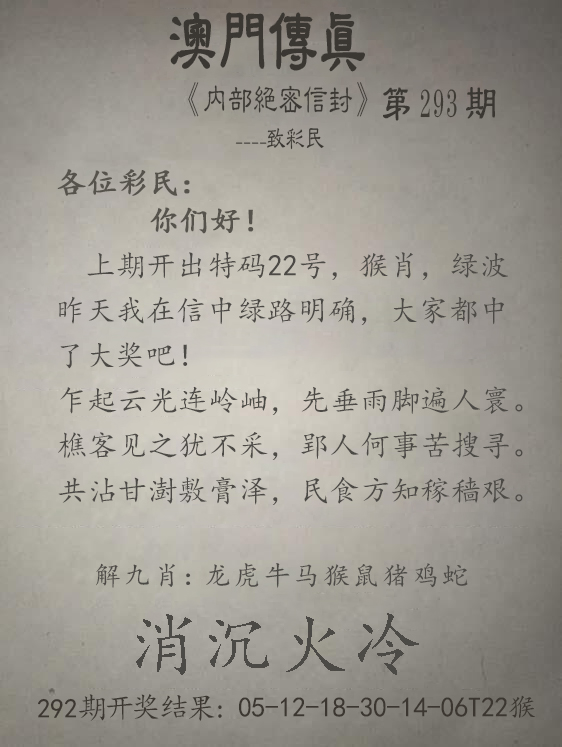 澳門傳真
《内部絕密信封》第293期
----致彩民
各位彩民：
你们好！
上期开出特码22号，猴肖，绿波
昨天我在信中绿路明确，大家都中
了大奖吧！
乍起云光连岭岫，先垂雨脚遍人寰。
樵客见之犹不采，郢人何事苦搜寻。
共沾甘澍敷膏泽，民食方知稼穑艰。
解九肖：龙虎牛马猴鼠猪鸡蛇
消沉火冷
292期开奖结果：05-12-18-30-14-06T22猴